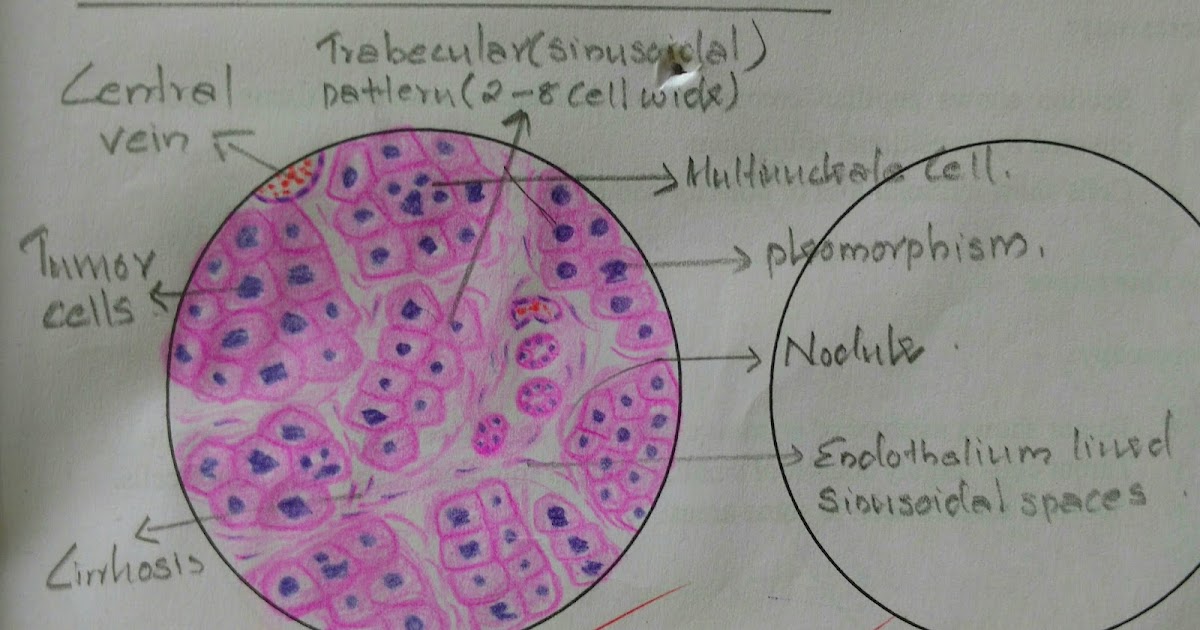 Trabecular(sinusoidal)
pattern(2-8 cell wide)
Central
vein
Multinucleate Cell.
pleomorphism.
Tumor
cells
Nodule.
Endothelium lined
sinusoidal spaces
Cirrhosis